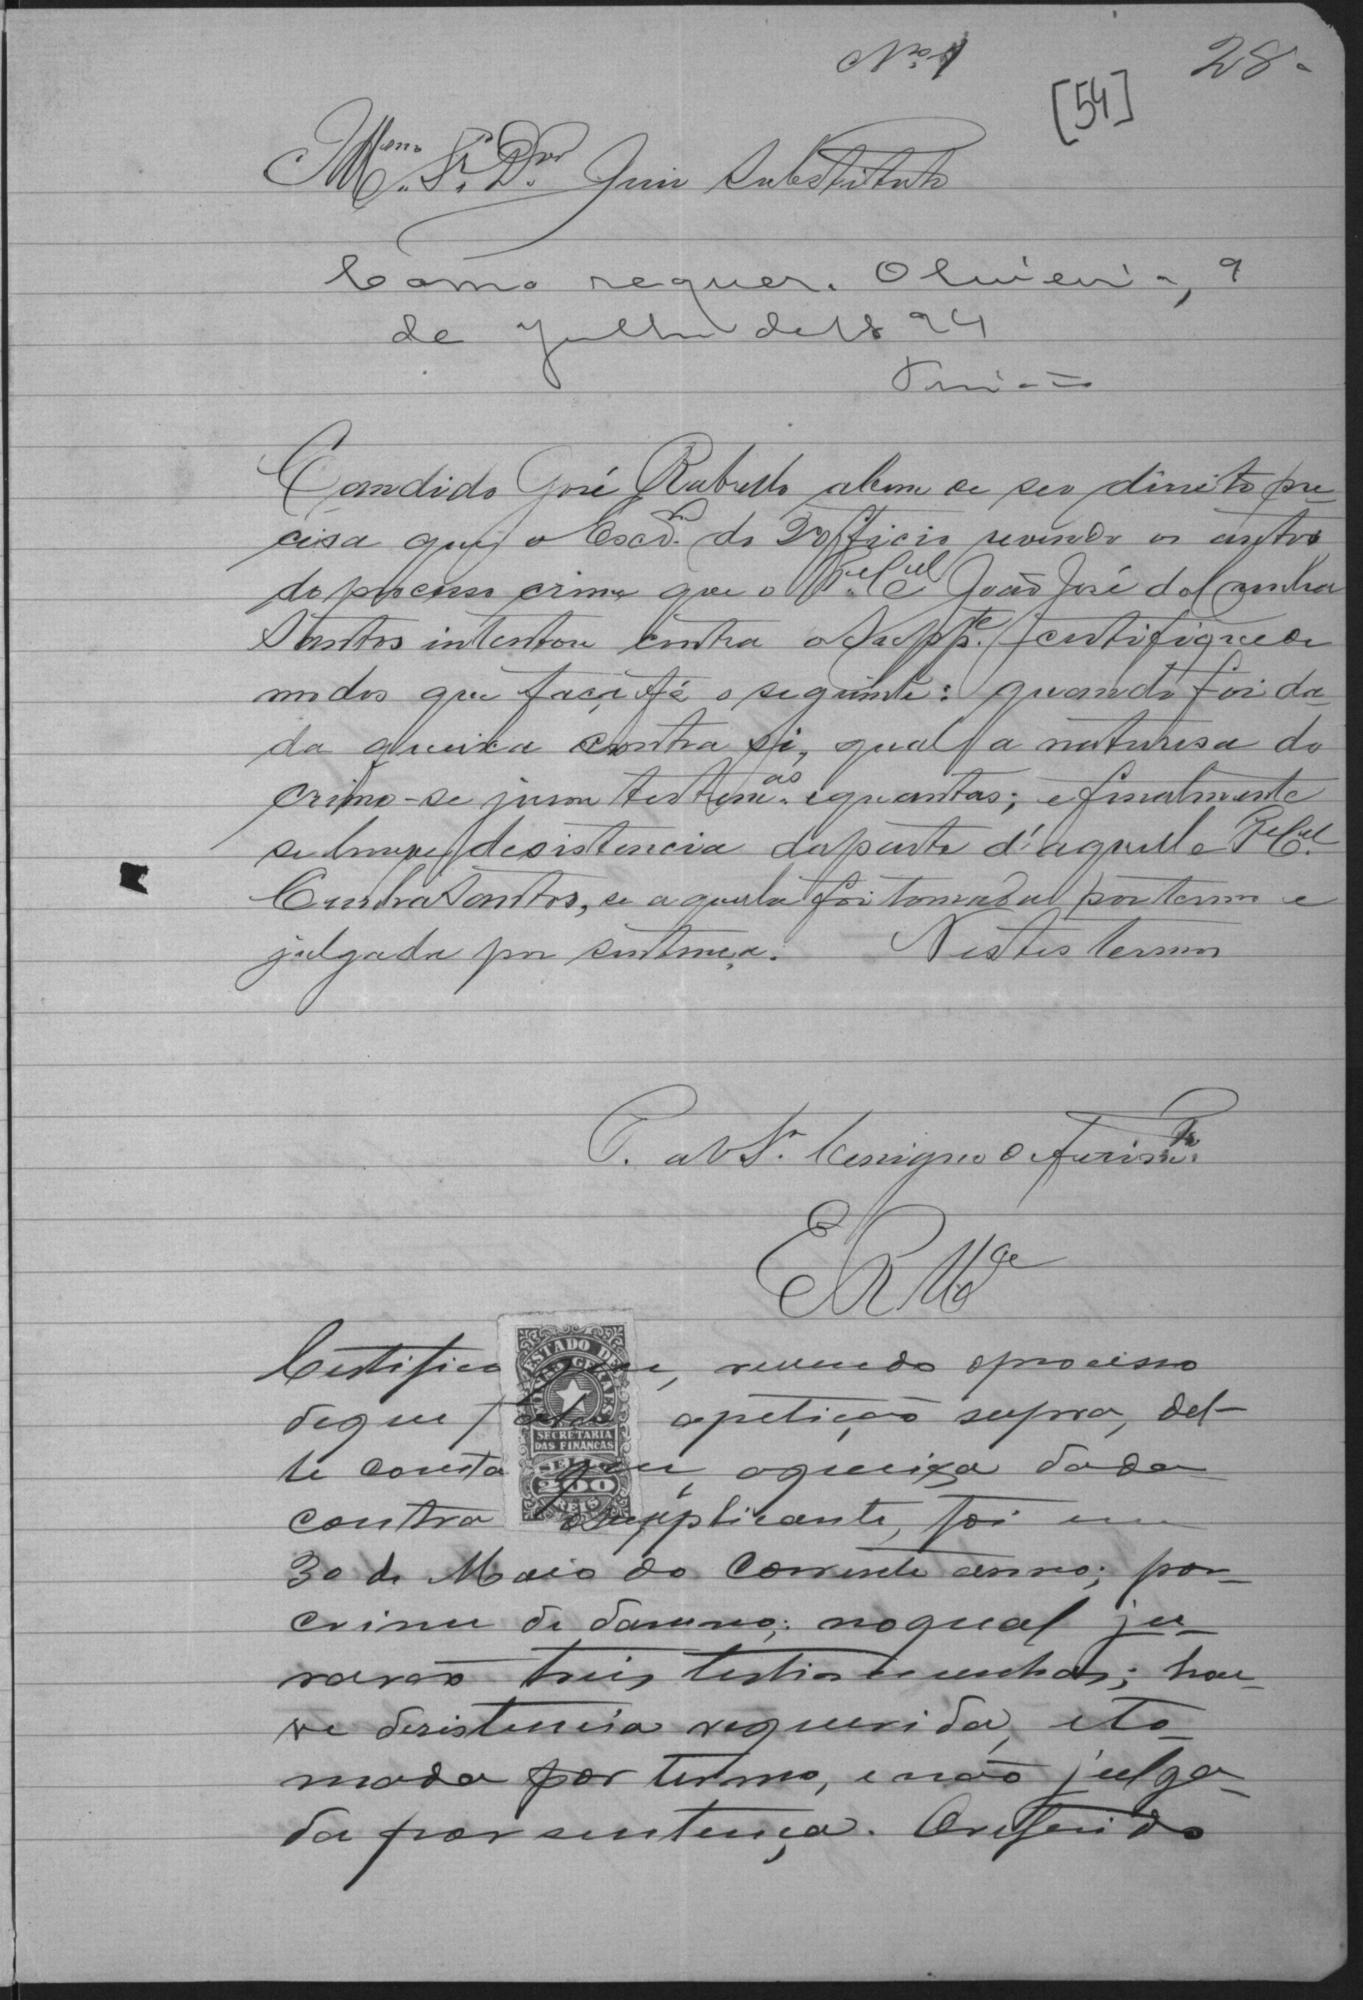 Nº 1
28
[54]
Mmo. Sr. Dor. Juiz Substituto
Como requer. Oliveira, 9
de Julho de 1894
Candido José Rabello abem de seo direito pre-
cisa que o Escram. do 2º officio revendo os autos
do processo crime que o Tel. Cel. João José da Cunha
Santos intentou contra o Suppe. certifique de
modos que faça fé o seguinte: quando foi da-
da queixa contra si, qual a naturesa do
crime - se jurou testemas. e quantas; e finalmente
se houve desistencia da parte d'aquelle Tel. Cel.
Cunha Santos, se aquella foi tomada por termo e
julgada por sentença. Nestes termos
P. a V. Sa. benigno deferimto.
E R Mce
Certifico que, revendo o processo
de que trata a petição supra, del-
le consta que a queixa dada
contra o supplicante, foi em
30 de Maio do corrente anno; por
crime de damno; no qual ju-
rarão tres testimunhas; hou-
ve desistencia requerida, e to-
mada por termo, e não julga-
da por sentença. O referido
ESTADO DE
MINAS GERAES
SECRETARIA
DAS FINANCAS
SELLO
200
REIS